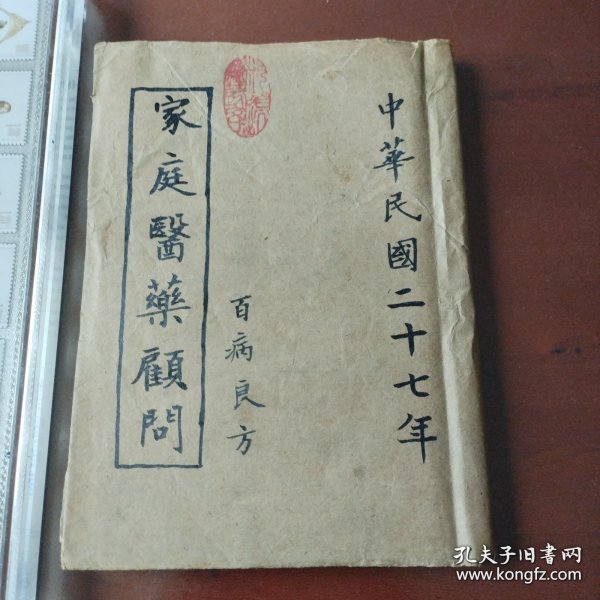 中華民國二十七年
百病良方
家庭醫藥顧問
孔夫子旧书网
www.kongfz.com